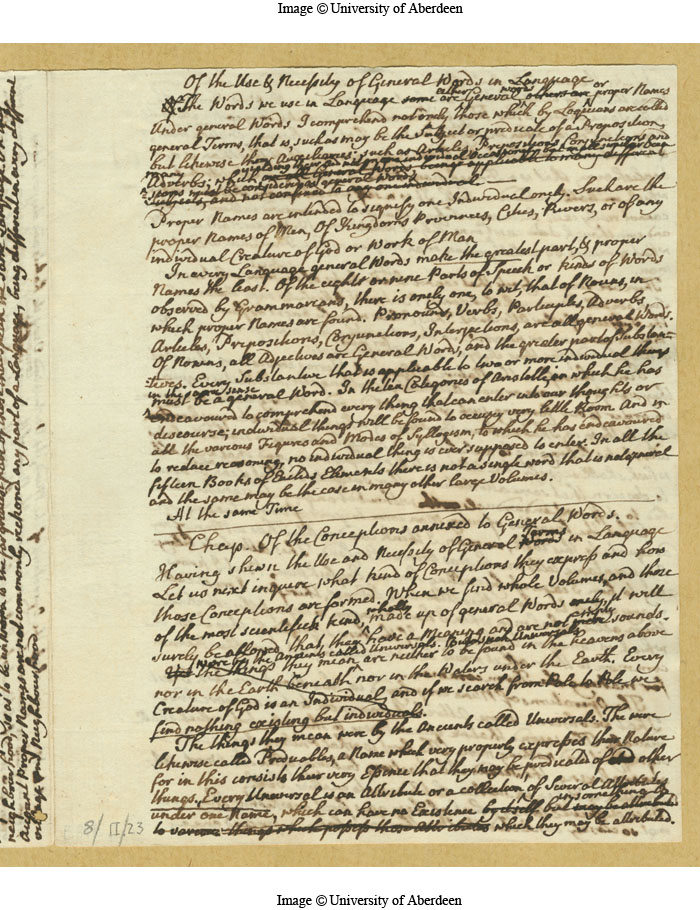 Image © University of Aberdeen
Of the Use & Necessity of General Words in Language
The Words we use in Language some are General words or proper Names
Under general Words I comprehend not onely those which by Logicians are called
general Terms, that is, such as may be the Subject or predicate of a Proposition,
but likewise their Auxiliaries; such as Articles, Prepositions Conjunctions and
Adverbs; which
subjects, and not confined to any one individual
Proper Names are intended to signify one Individual onely. Such are the
proper Names of Men, Of Kingdoms Provinces, Cities, Rivers, or of any
individual Creature of God or Work of Man
In every Language general Words make the greatest part, & proper
Names the least. Of the eight or nine Parts of Speech or kinds of Words
observed by Grammarians, there is onely one, to wit that of Nouns, in
which proper Names are found. Pronouns, Verbs, Participles, Adverbs
Articles, Prepositions, Conjunctions, Interjections, are all general Words.
Of Nouns, all Adjectives are General Words, and the greater part of Substan-
tives. Every Substantive that is applicable to two or more individual things
in the same sense
must be a general Word. In the ten Categories of Aristotle, in which he has
endeavoured to comprehend every thing that can enter into our thoughts or
discourse; individual things will be found to occupy very little Room. And in
all the various Figures and Modes of Syllogism, to which he has endeavoured
to reduce reasoning, no individual thing is ever supposed to enter. In all the
fifteen Books of Euclids Elements there is not a single word that is not general
and the same may be the case in many other large Volumes.
At the same Time
Chap. Of the Conceptions annexed to General Words.
Terms
Having shewn the Use and Necessity of General Words in Language
Let us next inquire, what kind of Conceptions they express and how
those Conceptions are formed. When we find whole Volumes, and those
of the most scientifick kind, wholly made up of general Words onely, it will
surely be allowed, that they have a Meaning and are not empty sounds.
the things they mean are neither to be found in the heavens above
nor in the Earth beneath nor in the Waters under the Earth. Every
Creature of God is an Individual, and if we search from Pole to Pole we
find nothing existing but individuals.
The things they mean were by the Ancients called Universals. The were
likewise called Predicables, a Name which very properly expresses their Nature
for in this consists their very Essence that they may be predicated of other
things. Every Universal is an Attribute or a collection of Several Attributes
under one Name, which can have no Existence by itself but in something to
to various things which possess those Attributes which they may be attributed.
8/II/23
neighbourhood,
August Proper Names are not commonly reckoned any part of a Language, being different in every different
and Neighbourhood
Image © University of Aberdeen